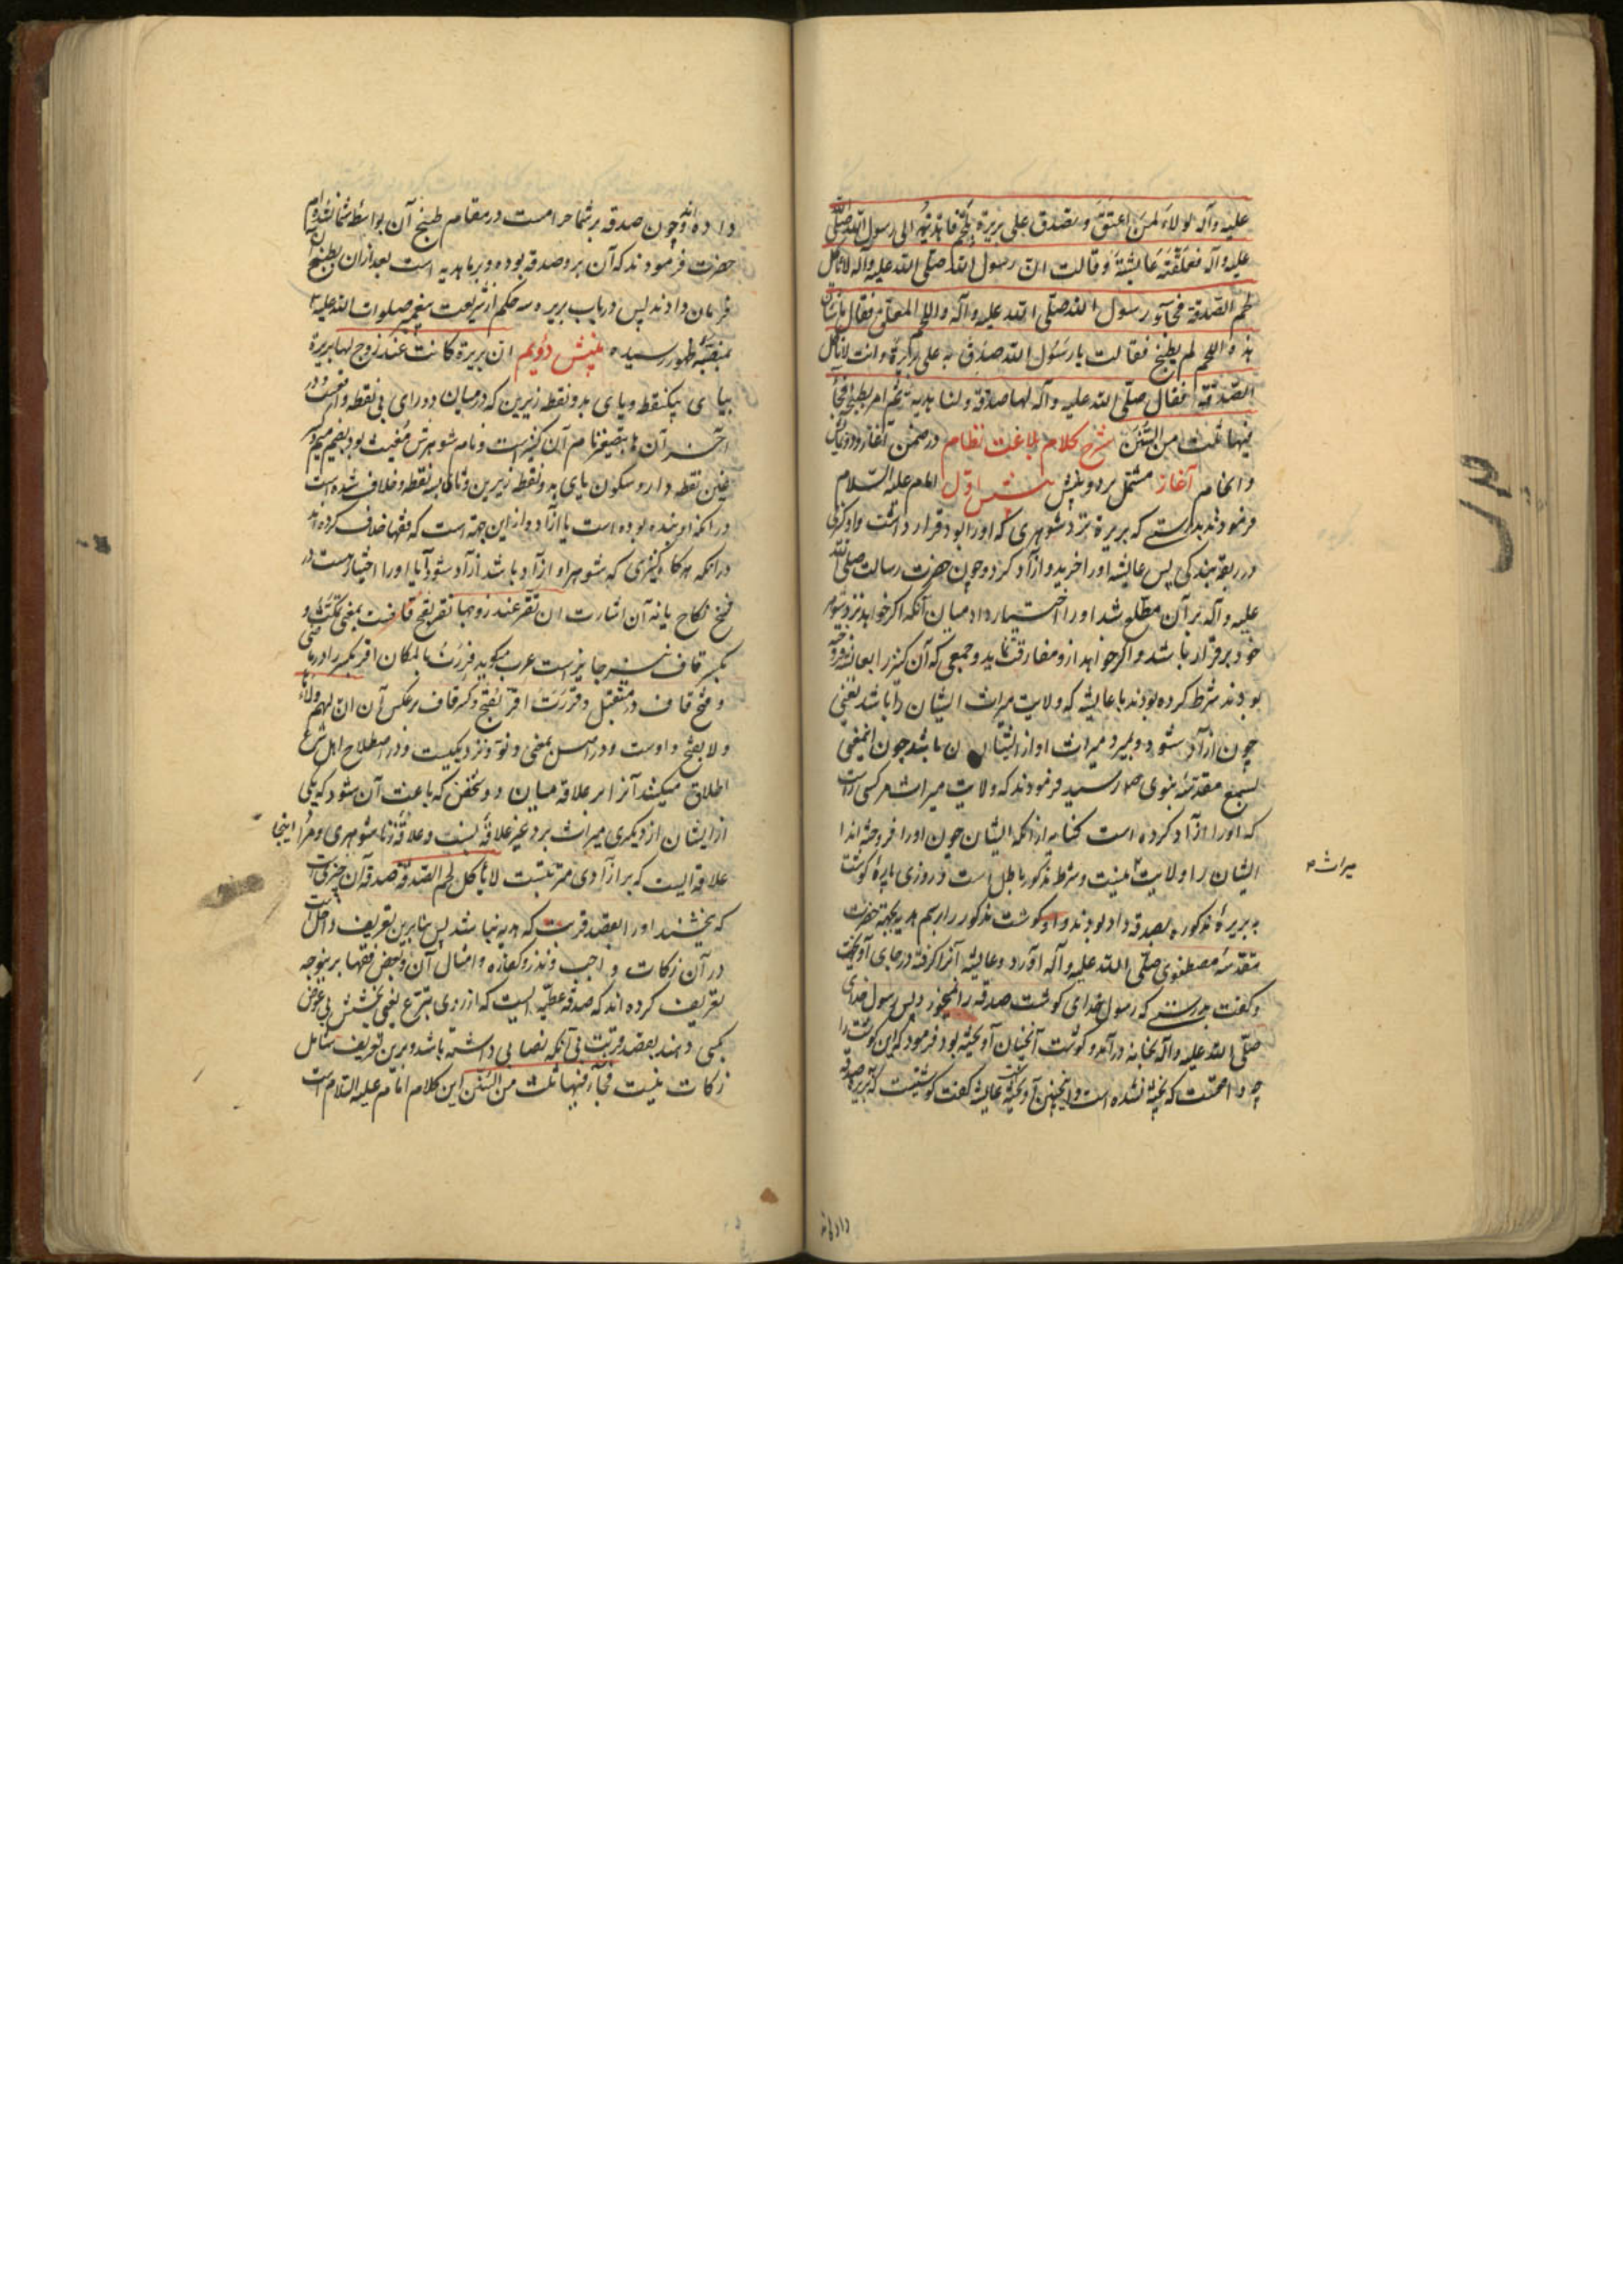 علیه وآله الولاء لمن اعتق وتصدق علی بریرة بلحم فاهدته الی رسول الله صلی الله
علیه وآله فعلقته عایشة وقالت ان رسول الله صلی الله علیه وآله لا یأکل
لحم الصدقة فجآء رسول الله صلی الله علیه وآله واللحم المعلق فقال ما شأن
هذا اللحم لم یطبخ فقالت یا رسول الله صدق به علی بریرة وانت لا تأکل
الصدقة فقال صلی الله علیه وآله لها صدقة ولنا هدیة ثم امر بطبخه فجآء
فیها ثلث من السنن شرح کلام بلاغت نظام در ضمن آغاز و دو
وانجام آغاز مشتمل بر دو بینش بینش اول امام علیه السلام
فرمودند بدرستی که بریره نزد شوهری که او را بود قرار داشت و او کنیزی
در ربقه بندگی پس عایشه او را خرید و آزاد کرد و چون حضرت رسالت صلی الله
علیه وآله بر آن مطلع شد او را اختیار داد میان آنکه اگر خواهد نزد شوهر
خود برقرار باشد و اگر خواهد از و مفارقت نماید و جمعی که آن کنیز را بعایشه فروخته
بودند شرط کرده بودند با عایشه که ولایت میراث ایشان را باشد یعنی
چون آزاد شود و بمیرد میراث او از ایشان باشد چون اینمعنی
بسمع مقدسهٔ نبوی ص رسید فرمودند که ولایت میراث هر کسی راست
که او را آزاد کرده است کنایه از انکه ایشان چون او را فروخته اند
ایشان را ولایت نیست و شرط مذکور باطل است و روزی پارهٔ گوشت
به بریرهٔ مذکوره بصدقه داده بودند و او گوشت مذکور را برسم هدیه بجهة حضرت
مقدسهٔ مصطفوی صلی الله علیه وآله آورد و عایشه آنرا گرفته در جای آویخت
و گفت بدرستی که رسول خدای گوشت صدقه را نمیخورد پس رسول خدای
صلی الله علیه وآله بخانه درآمد و گوشت آنچنان آویخته بود فرمود که این گوشت را
چه واقعست که پخته نشده است و اینچنین آویخته عایشه گفت گوشتیست که بریره صدقه
میراث
داده اند
داده اند و چون صدقه بر شما حرامست در مقام طبخ آن بواسطه شما نشده ام
حضرت فرمودند که آن بر و صدقه بوده و بر ما هدیه است بعد از آن بطبخ آن
فرمان دادند پس در باب بریره سه حکم از شریعت پیغمبر صلوات الله علیه
بمنصهٔ ظهور رسیده بینش دویم ان بریرة کانت عند زوج لها بریرة
ببای یکنقطه و یای بدو نقطه زیرین که در میان دو رای بی نقطه واقعست و در
آخر آن ها بتصغیر نام آن کنیز است و نام شوهرش مغیث بود بضم میم و کسر
غین نقطه دار و سکون یای بدو نقطه زیرین و ثای سه نقطه و خلاف شده است
در انکه او بنده بوده است یا آزاد و از این جهة است که فقها خلاف کرده اند
در انکه هر گاه کنیزی که شوهر او آزاد باشد آزاد شود آیا او را اختیار هست در
فسخ نکاح یا نه آن اشارت ان تقر عند زوجها تقر بفتح قافست بمعنی تمکث و
بکسر قاف نیز جایز است عرب میگوید قررت بالمکان اقر بکسر را در ماضی
و فتح قاف در مستقبل و قررت اقر بفتح و کسر قاف بر عکس آن ان لهم ولاءها
ولا بفتح واوست و در اصل بمعنی و نزدیکیست و در اصطلاح اهل شرع
اطلاق میکنند آنرا بر علاقه میان دو شخص که باعث آن شود که یکی
از ایشان از دیگری میراث برد غیر علاقهٔ نسب و علاقهٔ زناشوهری و مراد اینجا
علاقه ایست که بر آزادی مترتبست لا یأکل لحم الصدقة صدقه آن چیزیست
که بخشند او را بقصد قربت که هدیه نباشد پس بنابرین تعریف داخل است
در آن زکات واجب و نذر و کفاره و امثال آن و بعض فقها برینوجه
تعریف کرده اند که صدقه عطیه ایست که از روی تبرع یعنی بخشش بی عوض
بکسی دهند بقصد قربت بی آنکه نصابی داشته باشد و برین تعریف شامل
زکات نیست فجآء فیها ثلث من السنن این کلام امام علیه السلام است